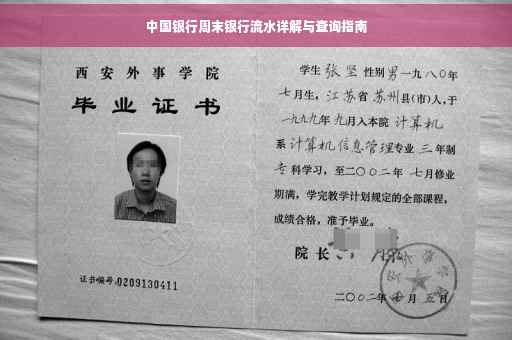 中国银行周末银行流水详解与查询指南
西安外事学院
毕业证书
证书编号:0209130411
学生 张坚 性别男一九八〇年
七月生,江苏省苏州县(市)人,于
一九九九年九月入本院 计算机
系 计算机信息管理专业 三 年制
专科学习,至二〇〇二年 七月修业
期满,学完教学计划规定的全部课程,
成绩合格,准予毕业。
院长
二〇〇二年 月五日